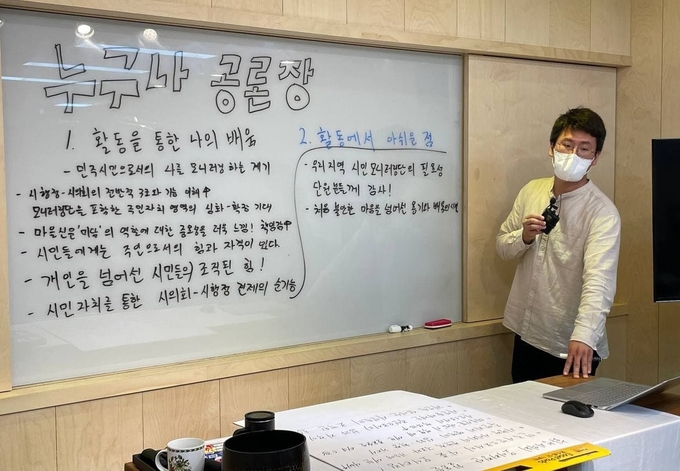 누구나 공론장
1. 활동을 통한 나의 배움
- 민주시민으로서의 나를 모니터링 하는 계기
- 시행정-시의회의 전반적 구조와 기능 이해↑
모니터링단을 포함한 주민자치 영역의 심화-확장 기대
- 마을신문 '미담'의 역할에 대한 중요성을 더욱 느낌!
- 시민들에게는 주인으로서의 힘과 자격이 있다.
- 개인을 넘어선 시민들의 조직된 힘!
- 시민자치를 통한 시의회-시행정 견제의 순기능
2. 활동에서 아쉬운 점
우리지역 시민 모니터링단의 필요성
단원분들께 감사!
- 처음 불안한 마음을 넘어선 용기와